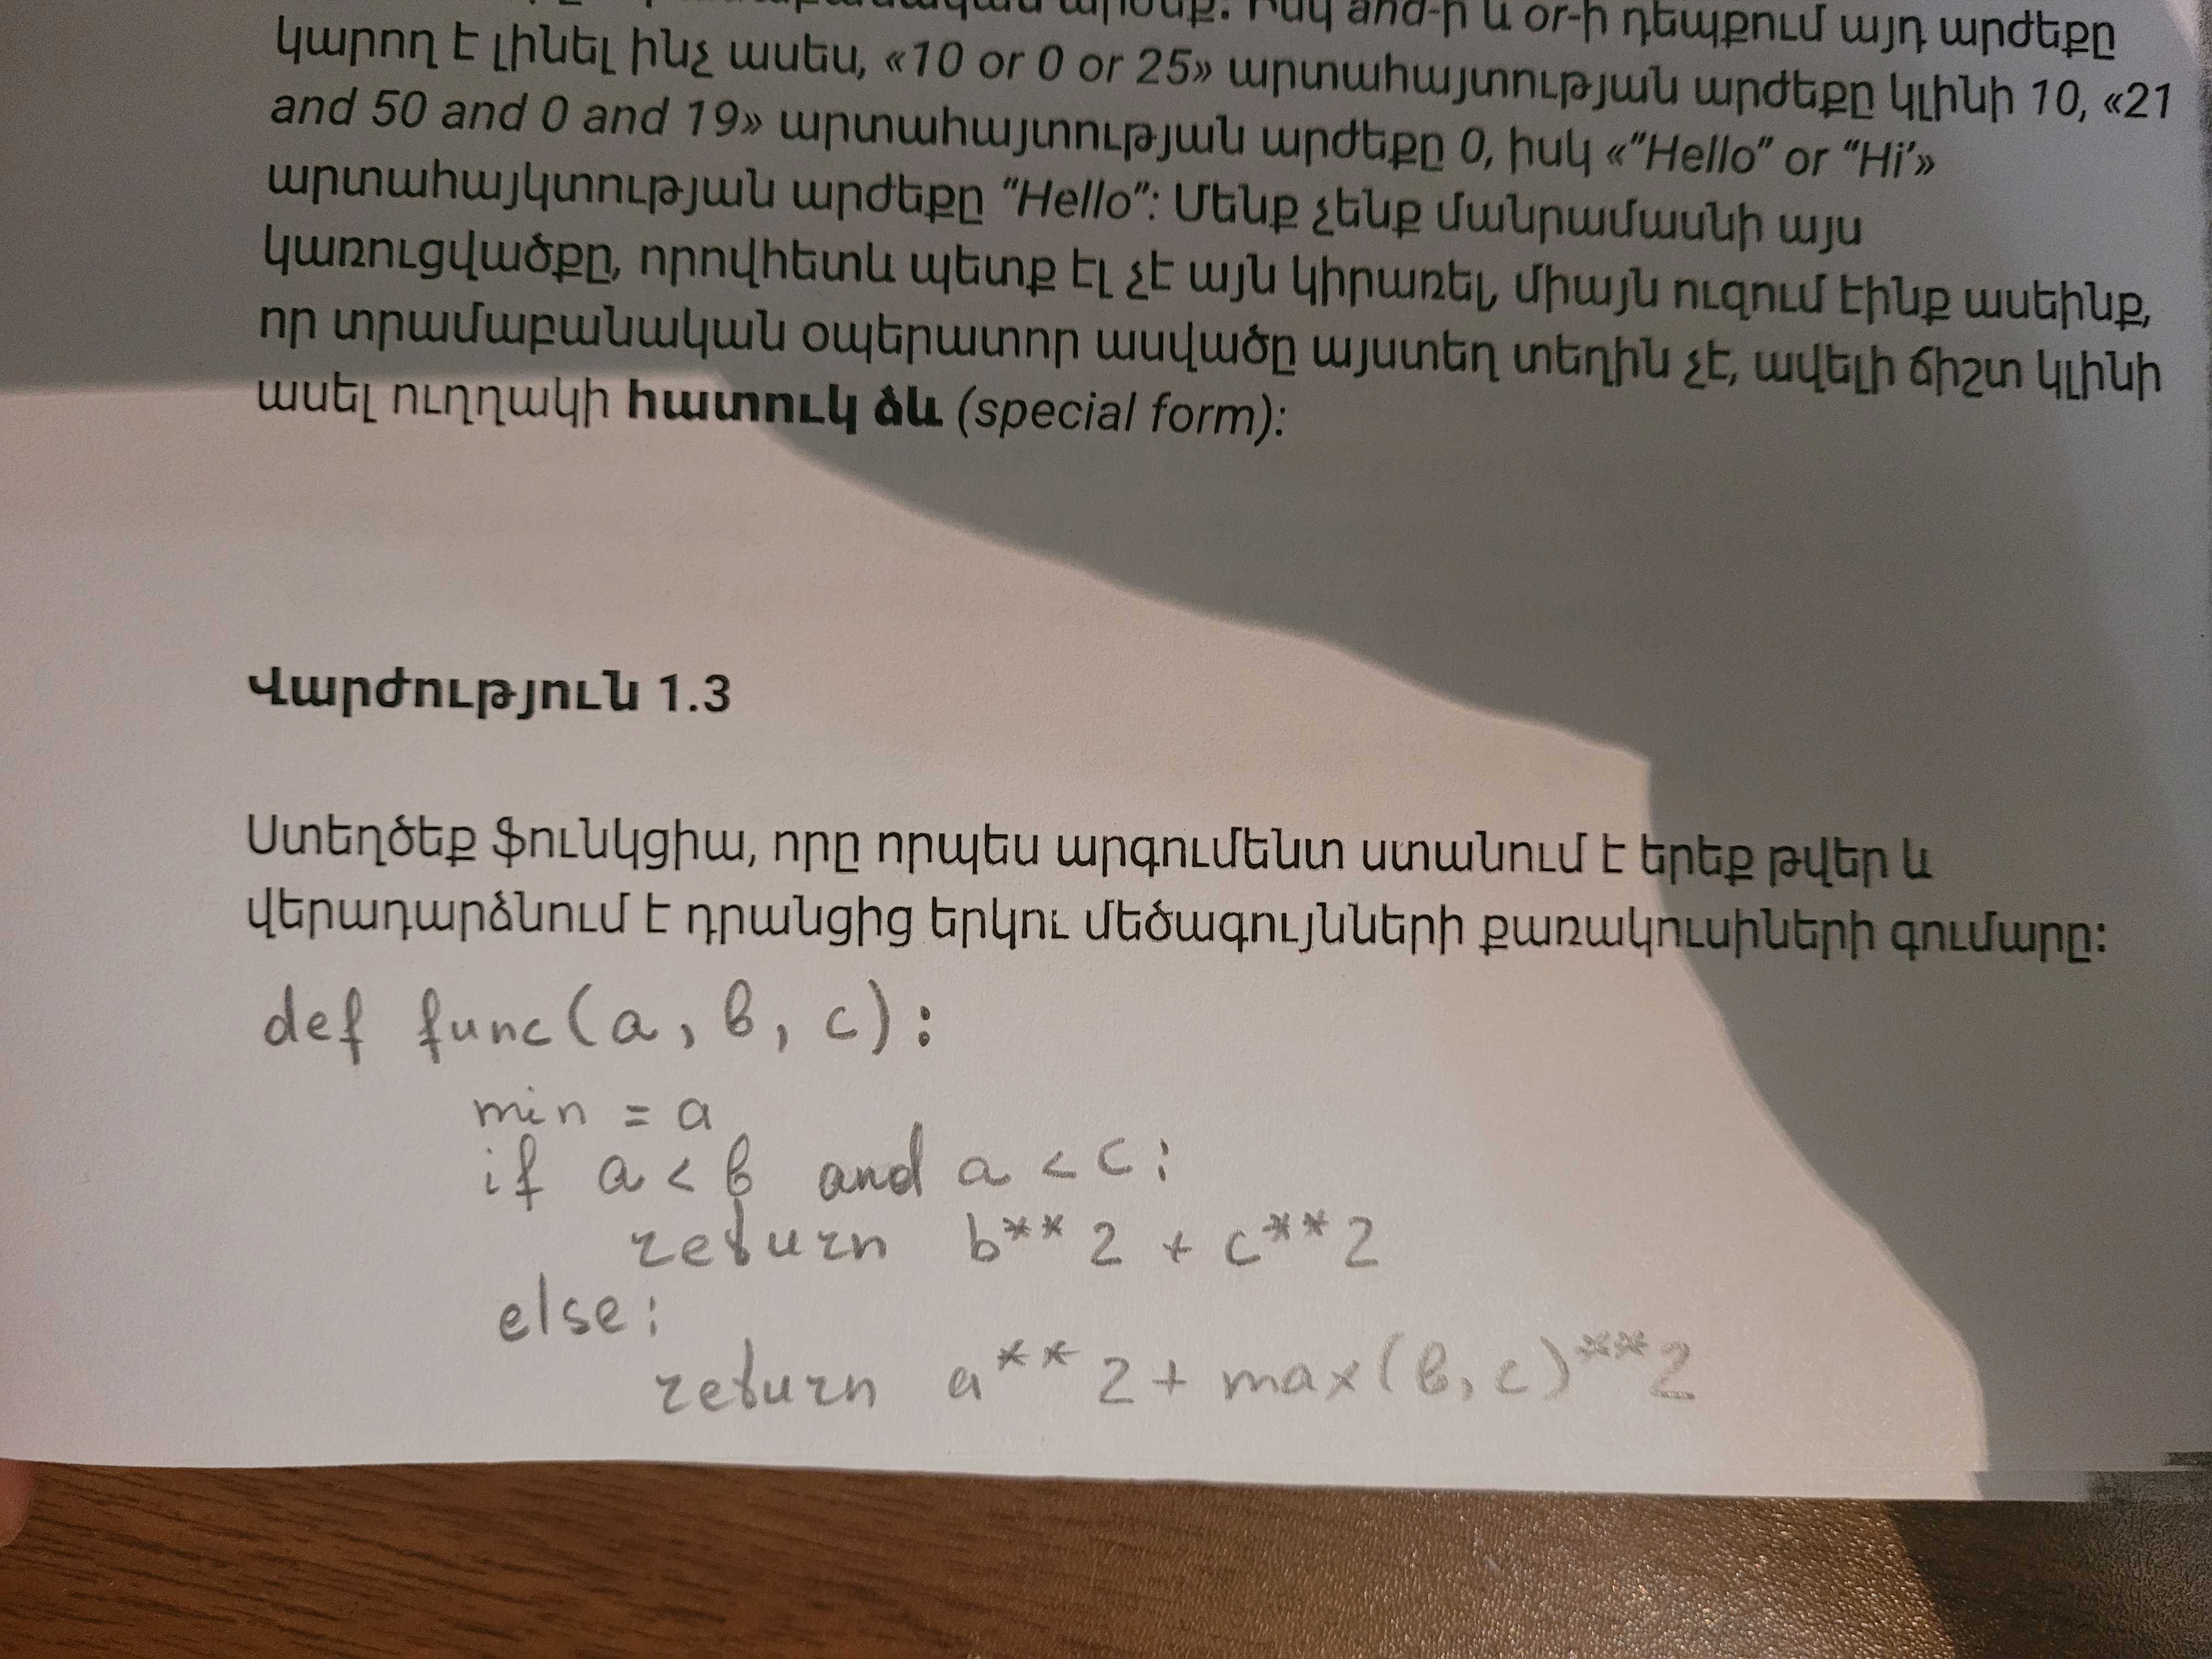 and-ի և or-ի դեպքում այդ արժեքը
կարող է լինել ինչ ասես, «10 or 0 or 25» արտահայտության արժեքը կլինի 10, «21
and 50 and 0 and 19» արտահայտության արժեքը 0, իսկ «"Hello" or "Hi'»
արտահայկտության արժեքը "Hello": Մենք չենք մանրամասնի այս
կառուցվածքը, որովհետև պետք էլ չէ այն կիրառել, միայն ուզում էինք ասեինք,
որ տրամաբանական օպերատոր ասվածը այստեղ տեղին չէ, ավելի ճիշտ կլինի
ասել ուղղակի հատուկ ձև (special form):
Վարժություն 1.3
Ստեղծեք ֆունկցիա, որը որպես արգումենտ ստանում է երեք թվեր և
վերադարձնում է դրանցից երկու մեծագույնների քառակուսիների գումարը:
def func(a, b, c):
min = a
if a < b and a < c:
return b** 2 + c**2
else:
return a** 2 + max(b, c)**2